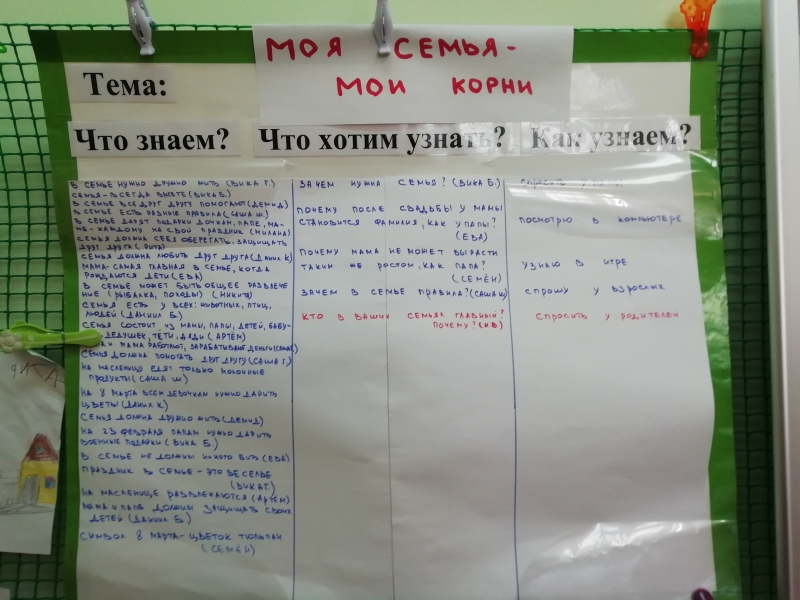 МОЯ СЕМЬЯ-
МОИ КОРНИ
Тема:
Что знаем?
В СЕМЬЕ НУЖНО ДРУЖНО ЖИТЬ (ВИКА Г.)
СЕМЬЯ-ВСЕГДА ВМЕСТЕ (ВИКА Б.)
В СЕМЬЕ ВСЕ ДРУГ ДРУГУ ПОМОГАЮТ (ДЕМИД)
В СЕМЬЕ ЕСТЬ РАЗНЫЕ ПРАВИЛА (САША Ш.)
В СЕМЬЕ ДАРЯТ ПОДАРКИ ДОЧКАМ, ПАПЕ, МА-
МЕ-КАЖДОМУ НА СВОЙ ПРАЗДНИК (МИЛАНА)
СЕМЬЯ ДОЛЖНА СЕБЯ ОБЕРЕГАТЬ, ЗАЩИЩАТЬ
ДРУГ ДРУГА (РИТА)
СЕМЬЯ ДОЛЖНА ЛЮБИТЬ ДРУГ ДРУГА (ДАНИЛ К)
МАМА-САМАЯ ГЛАВНАЯ В СЕМЬЕ, КОГДА
РОЖДАЮТСЯ ДЕТИ (ЕВА)
В СЕМЬЕ МОЖЕТ БЫТЬ ОБЩЕЕ РАЗВЛЕЧЕ
НИЕ (РЫБАЛКА, ПОХОДЫ) (НИКИТА)
СЕМЬЯ ЕСТЬ У ВСЕХ: ЖИВОТНЫХ, ПТИЦ,
ЛЮДЕЙ (ДАНИИЛ Б.)
СЕМЬЯ СОСТОИТ ИЗ МАМЫ, ПАПЫ, ДЕТЕЙ, БАБУ-
ДЕДУШЕК, ТЁТИ, ДЯДИ (АРТЁМ)
И МАМА РАБОТАЮТ, ЗАРАБАТЫВАЮТ ДЕНЬГИ
СЕМЬЯ ДОЛЖНА ПОМОГАТЬ ДРУГ ДРУГУ (САША Г.)
НА МАСЛЕНИЦУ ЕДЯТ ТОЛЬКО МОЛОЧНЫЕ
ПРОДУКТЫ (САША Ш)
НА 8 МАРТА ВСЕМ ДЕВОЧКАМ НУЖНО ДАРИТЬ
ЦВЕТЫ (ДАНИЛ К)
СЕМЬЯ ДОЛЖНА ДРУЖНО ЖИТЬ (ДЕМИД)
НА 23 ФЕВРАЛЯ ПАПАМ НУЖНО ДАРИТЬ
ВОЕННЫЕ ПОДАРКИ (ВИКА Б.)
В СЕМЬЕ НЕ ДОЛЖНЫ НИКОГО БИТЬ (ЕВА)
ПРАЗДНИК В СЕМЬЕ-ЭТО ВЕСЕЛЬЕ
(ВИКА Г.)
НА МАСЛЕНИЦЕ РАЗВЛЕКАЮТСЯ (АРТЁМ)
МАМА И ПАПА ДОЛЖНЫ ЗАЩИЩАТЬ СВОИХ
ДЕТЕЙ (ДАНИИЛ Б.)
СИМВОЛ 8 МАРТА-ЦВЕТОК ТЮЛЬПАН
(СЕМЁН)
Что хотим узнать?
ЗАЧЕМ НУЖНА СЕМЬЯ? (ВИКА Б.)
ПОЧЕМУ ПОСЛЕ СВАДЬБЫ У МАМЫ
СТАНОВИТСЯ ФАМИЛИЯ, КАК У ПАПЫ?
(ЕВА)
ПОЧЕМУ МАМА НЕ МОЖЕТ ВЫРАСТИ
ТАКИМ ЖЕ РОСТОМ, КАК ПАПА?
(СЕМЁН)
ЗАЧЕМ В СЕМЬЕ ПРАВИЛА? (САША Ш)
КТО В ВАШИХ СЕМЬЯХ ГЛАВНЫЙ?
ПОЧЕМУ? (Н.В)
Как узнаем?
СПРОСИТЬ У
ПОСМОТРЮ В КОМПЬЮТЕРЕ
УЗНАЮ В ИГРЕ
СПРОШУ У ВЗРОСЛЫХ
СПРОСИТЬ У РОДИТЕЛЕЙ